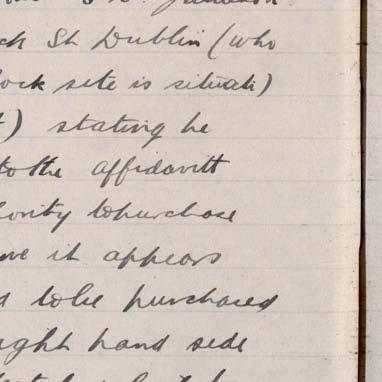 ck St Dublin (who
ock site is situate)
t) stating he
to the affidavitt
hority to purchase
ve it appears
d to be purchased
ight hand side